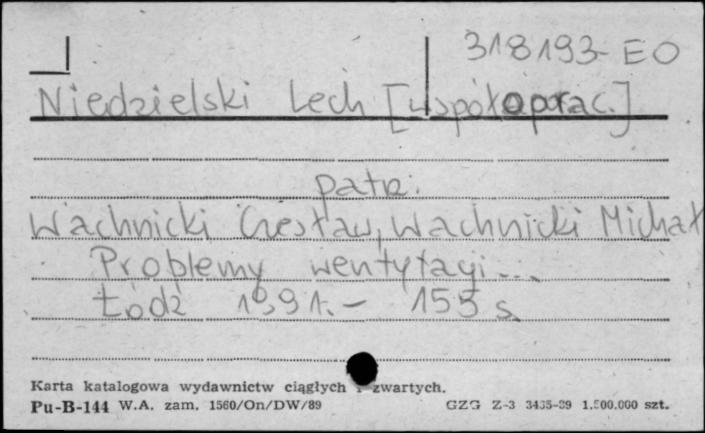 318193-EO
Niedzielski Lech [współoprac.]
patrz:
Wachnicki Czesław, Wachnicki Michał
Problemy wentylacji...
Łódź 1991.- 155 s.
Karta katalogowa wydawnictw ciągłych i zwartych.
Pu-B-144 W.A. zam. 1560/On/DW/89 GZG Z-3 3435-89 1.500.000 szt.